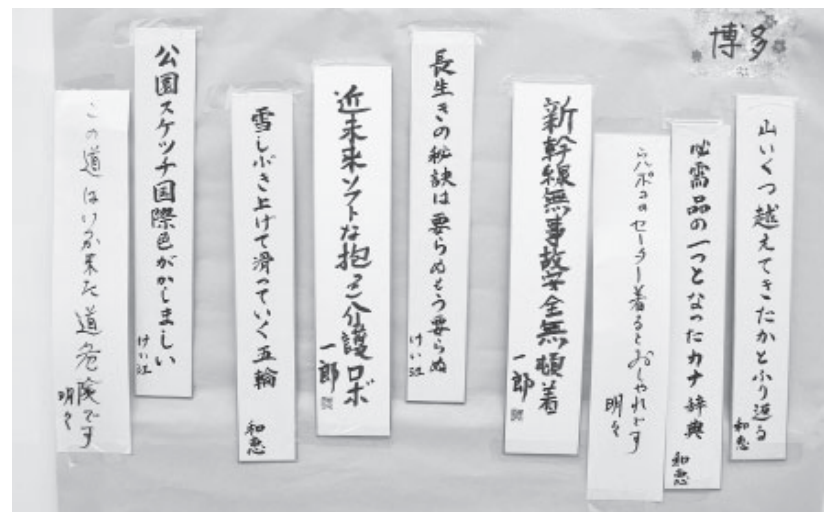 博多
山いくつ越えてきたかとふり返る
和恵
必需品の一つとなったカナ辞典
和恵
セーラー着るとおしゃれです
明々
新幹線無事故安全無頓着
一郎
長生きの秘訣は要らぬもう要らぬ
けい江
近未来ソフトな抱き介護ロボ
一郎
雪しぶき上げて滑っていく五輪
和恵
公園スケッチ国際色がかしましい
けい江
この道はいつか来た道危険です
明々